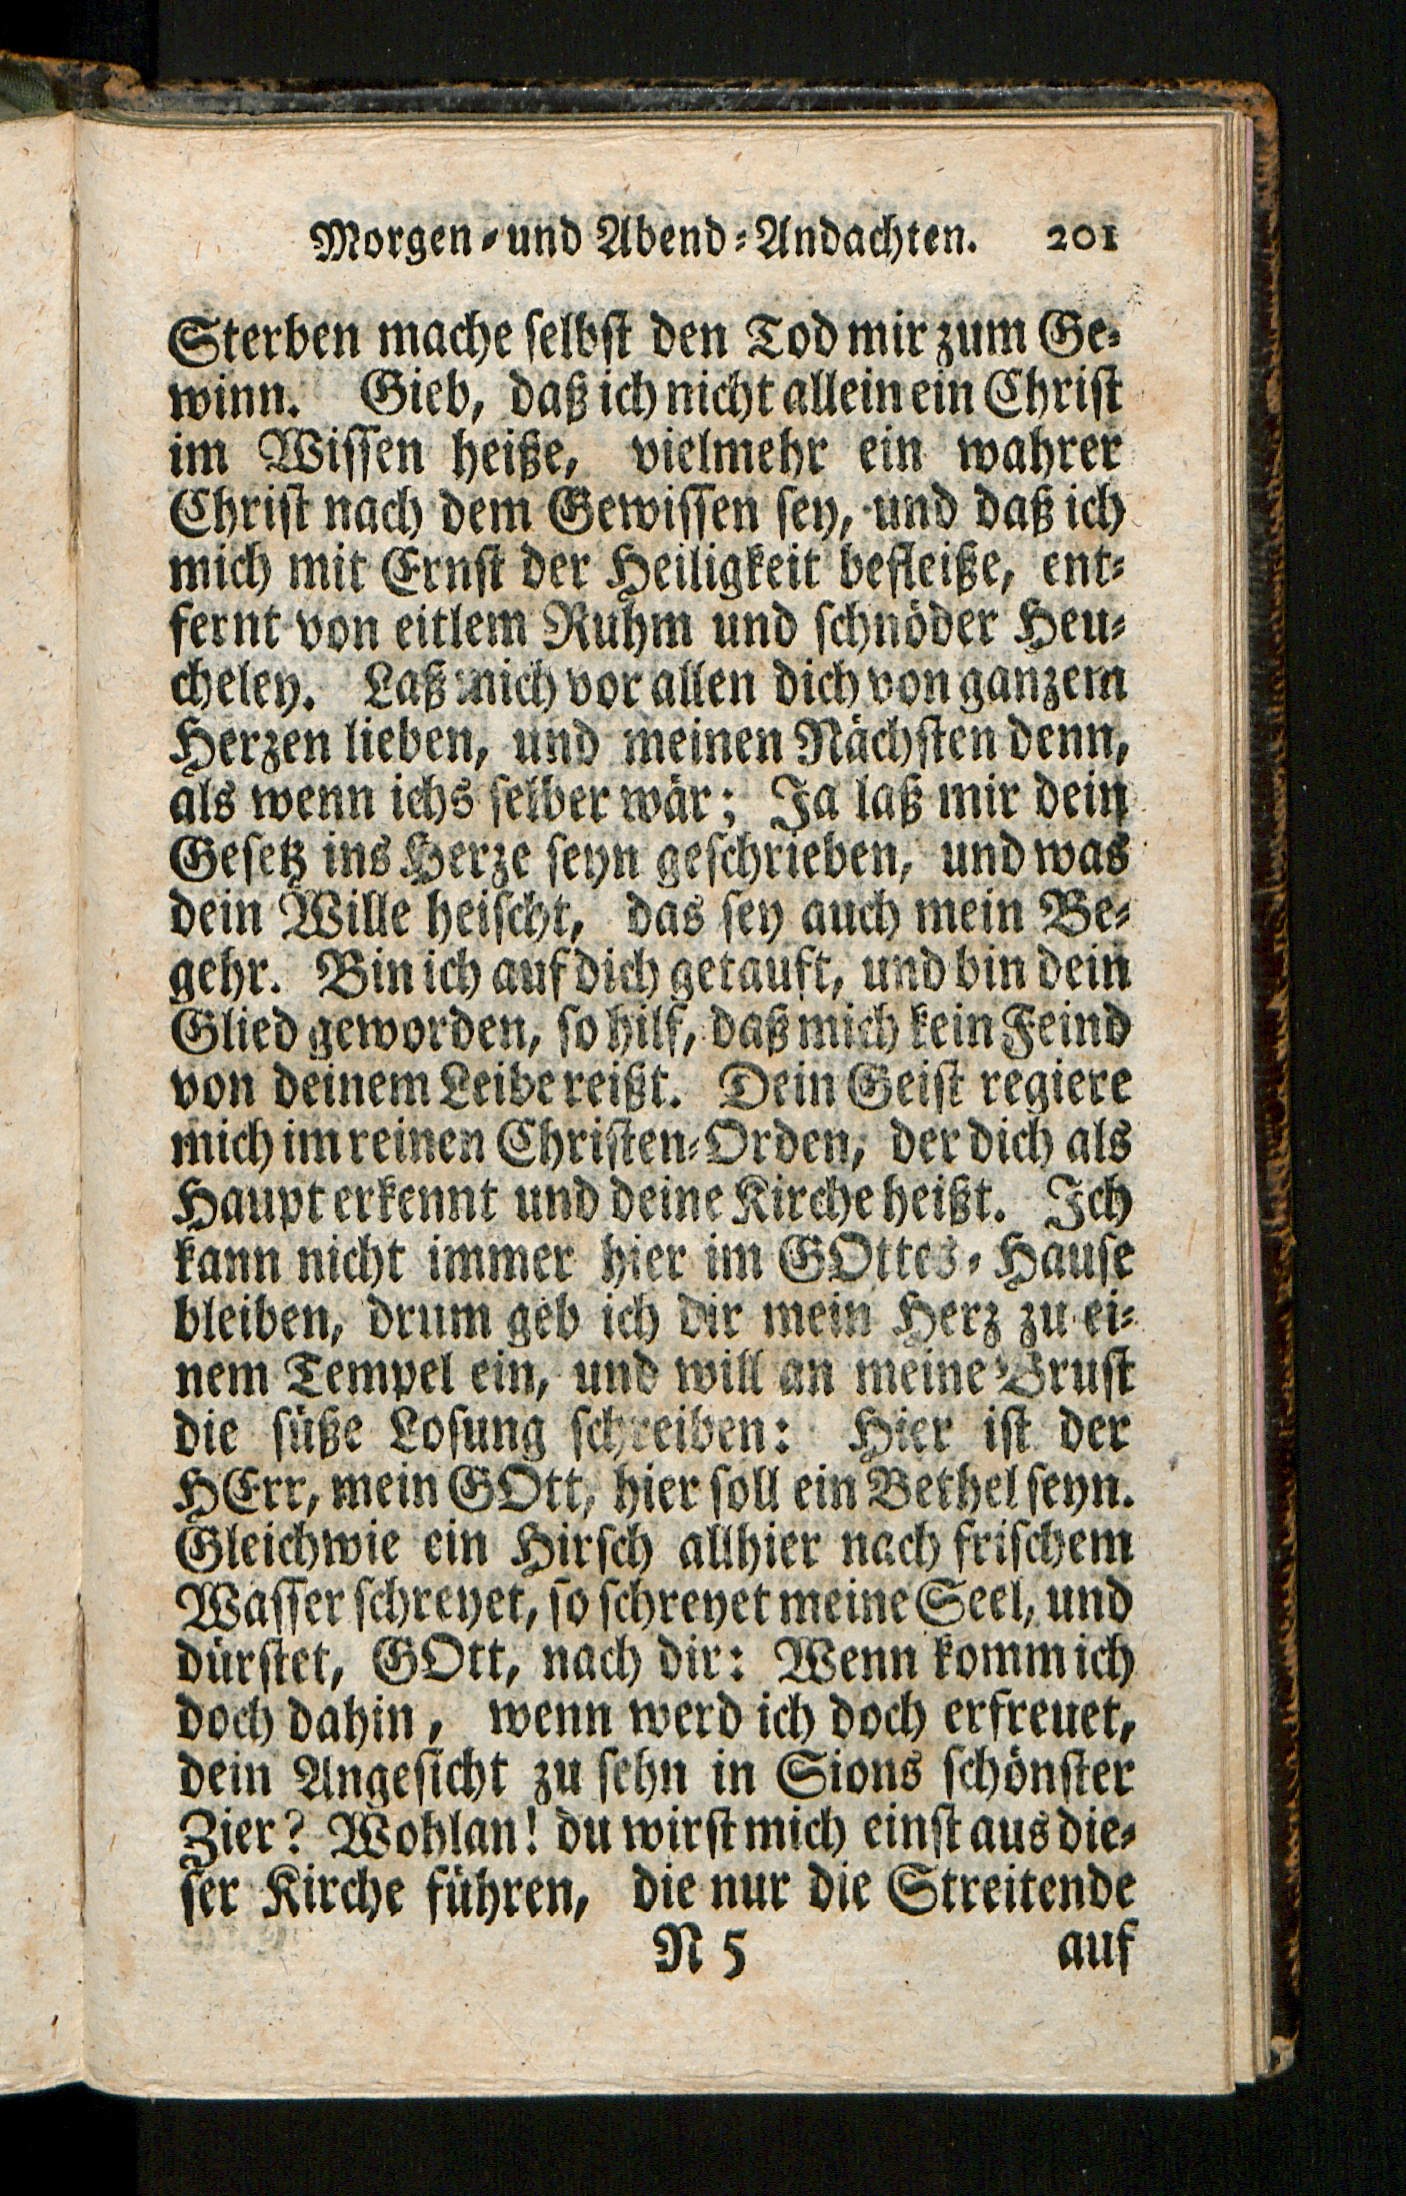 Morgen-und Abend-Andachten. 201
Sterben mache selbst den Tod mir zum Ge-
winn. Gieb, daß ich nicht allein ein Christ
im Wissen heiße, vielmehr ein wahrer
Christ nach dem Gewissen sey, und daß ich
mich mit Ernst der Heiligkeit befleiße, ent-
fernt von eitlem Ruhm und schnöder Heu-
cheley. Laß mich vor allen dich von ganzem
Herzen lieben, und meinen Nächsten denn,
als wenn ichs selber wär; Ja laß mir dein
Gesetz ins Herze seyn geschrieben, und was
dein Wille heischt, das sey auch mein Be-
gehr. Bin ich auf dich getauft, und bin dein
Glied geworden, so hilf, daß mich kein Feind
von deinem Leibe reißt. Dein Geist regiere
mich im reinen Christen-Orden, der dich als
Haupt erkennt und deine Kirche heißt. Ich
kann nicht immer hier im GOttes-Hause
bleiben, drum geb ich dir mein Herz zu ei-
nem Tempel ein, und will an meine Brust
die süße Losung schreiben: Hier ist der
HErr, mein GOtt, hier soll ein Bethel seyn.
Gleichwie ein Hirsch allhier nach frischem
Wasser schreyet, so schreyet meine Seel, und
dürstet, GOtt, nach dir: Wenn komm ich
doch dahin, wenn werd ich doch erfreuet,
dein Angesicht zu sehn in Sions schönster
Zier? Wohlan! du wirst mich einst aus die-
ser Kirche führen, die nur die Streitende
N 5 auf